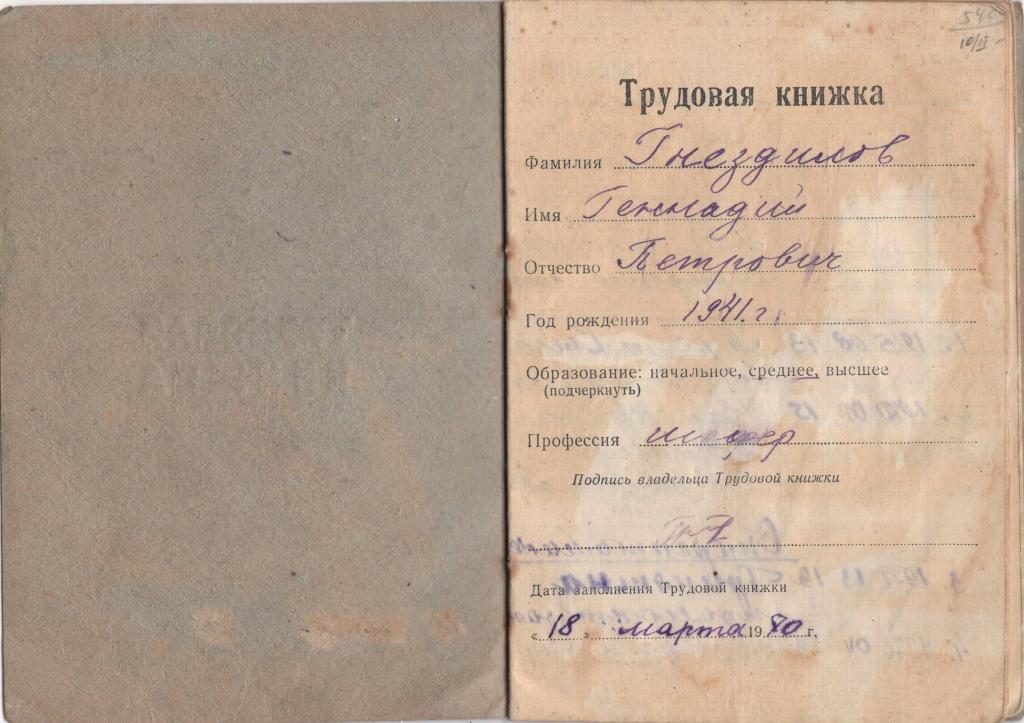 Трудовая книжка
Фамилия Гнездилов
Имя Геннадий
Отчество Петрович
Год рождения 1941 г.
Образование: начальное, среднее, высшее
(подчеркнуть)
Профессия шофер
Подпись владельца Трудовой книжки
Дата заполнения Трудовой книжки
«18» марта 1980 г.